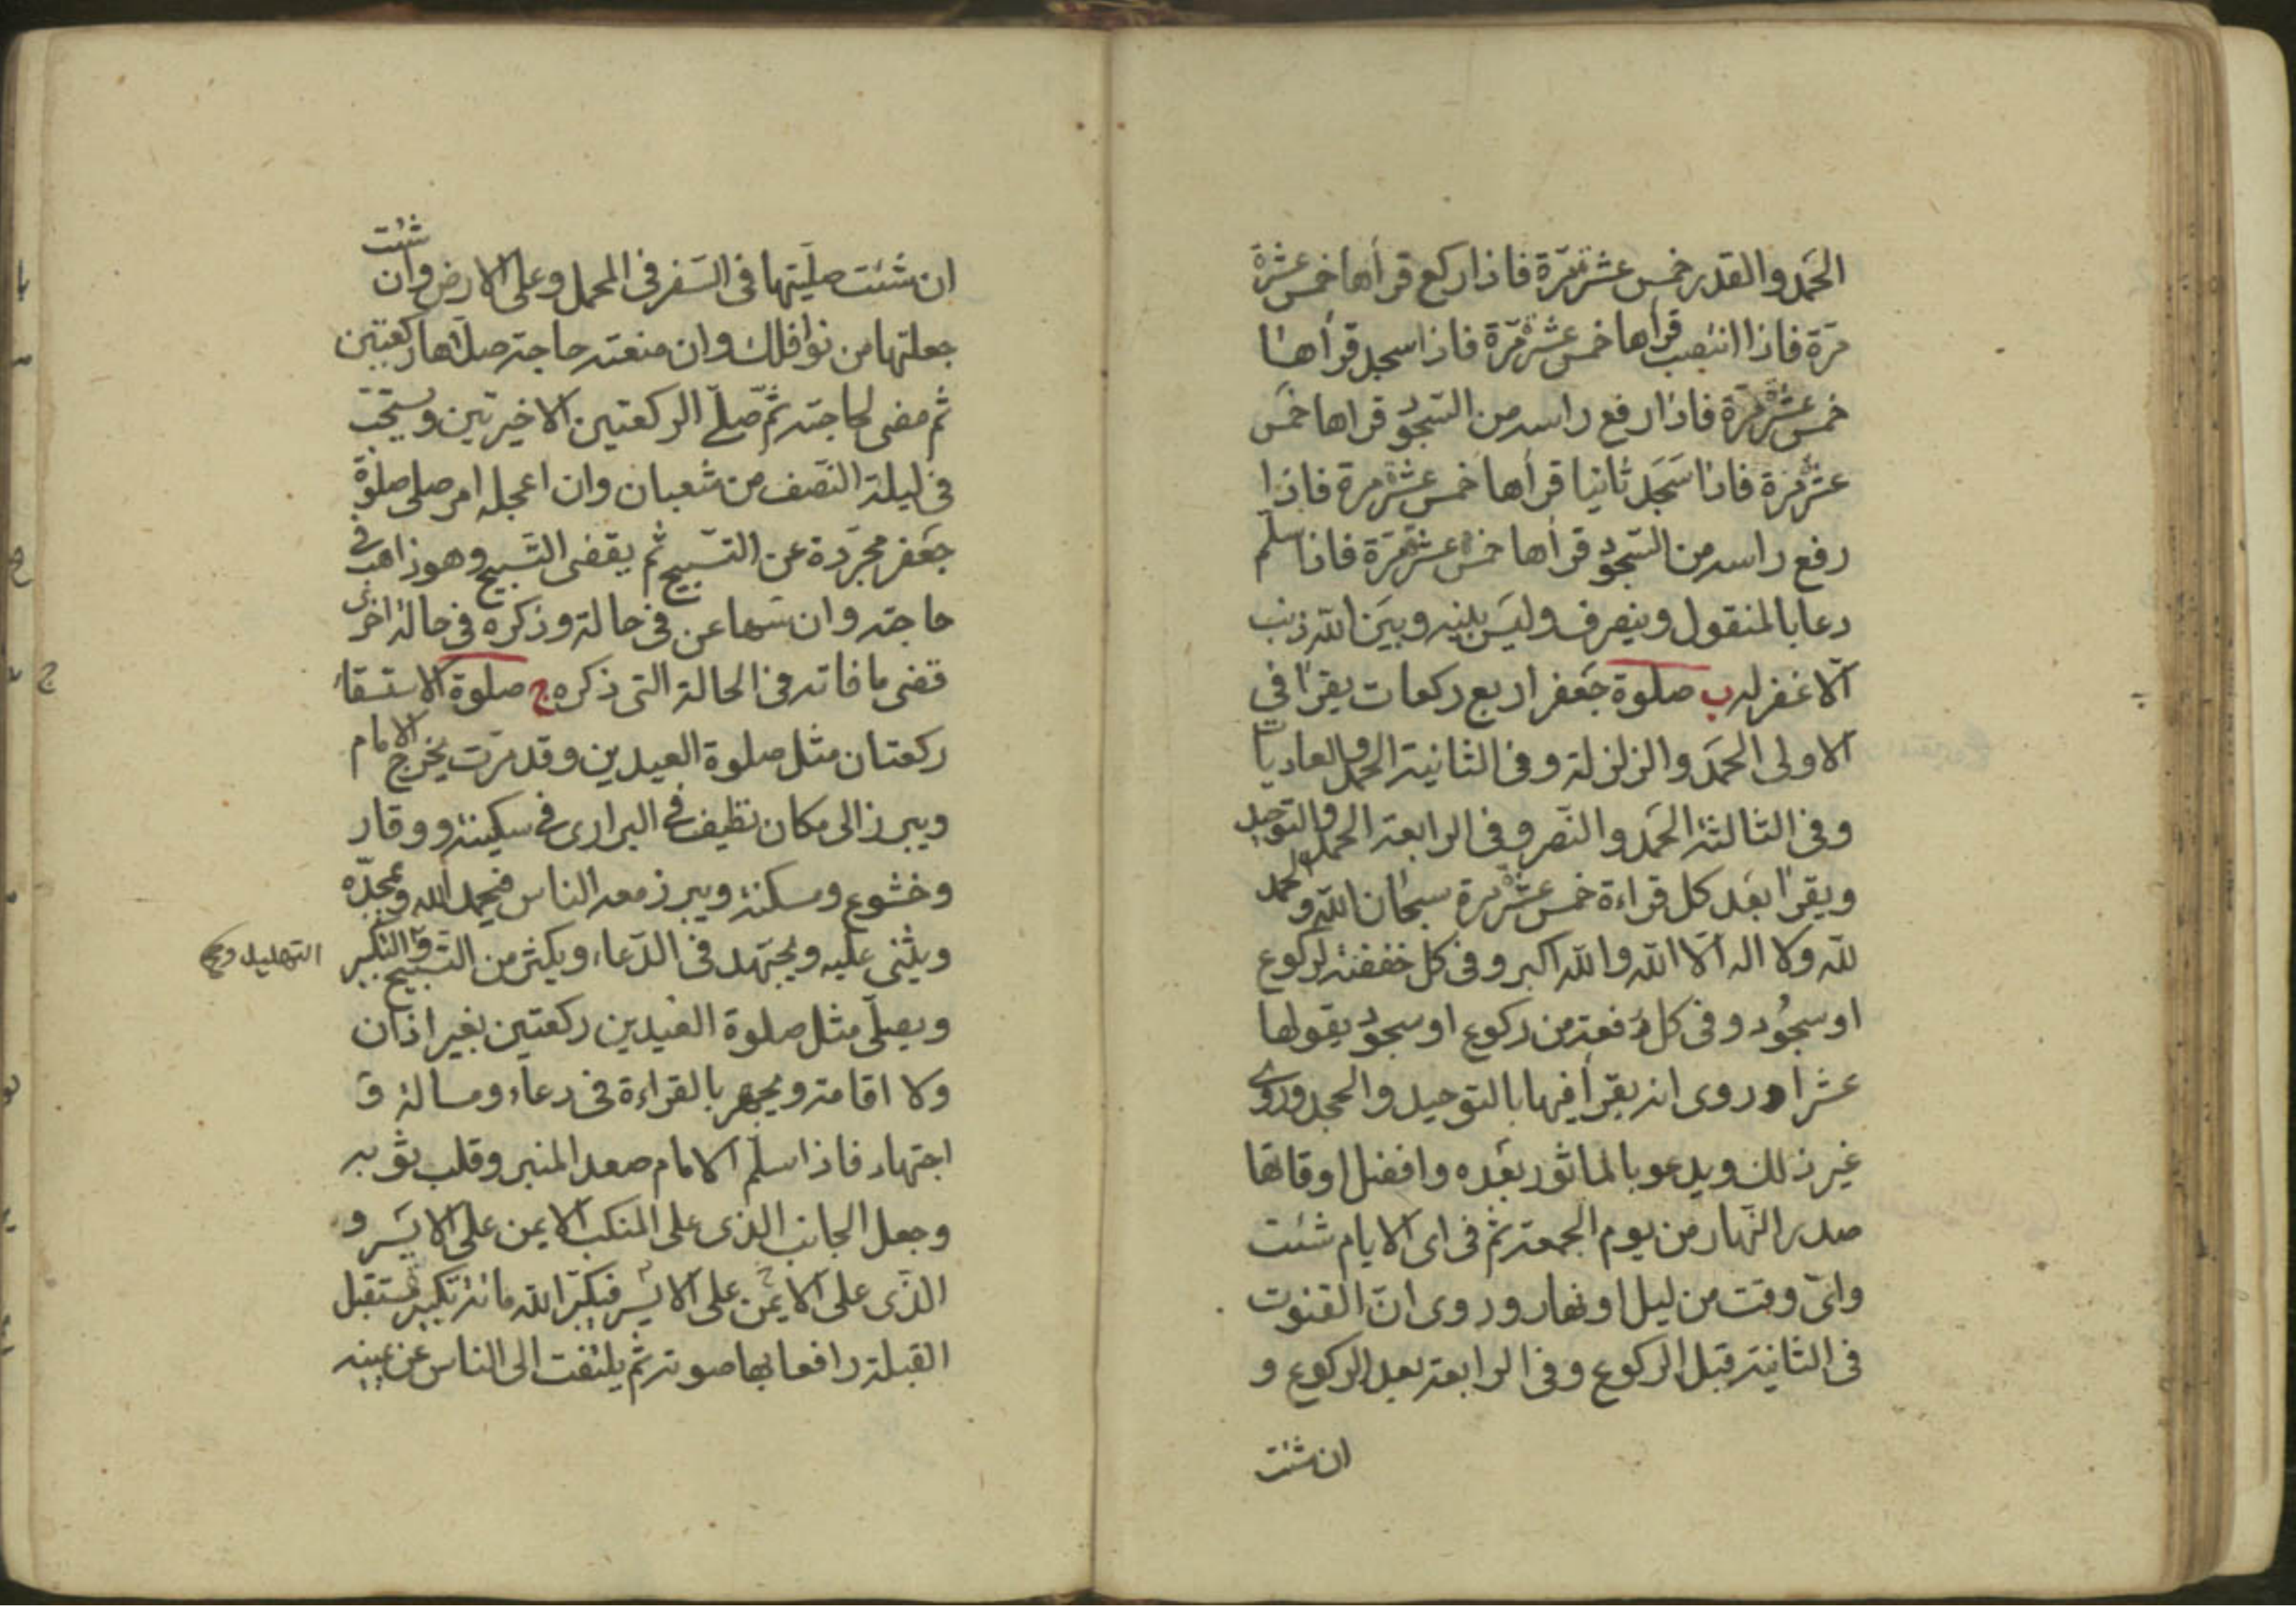 الحمد والقدر خمس عشرة مرة فاذا ركع قرأها خمس عشرة
مرة فاذا انتصب قرأها خمس عشرة مرة فاذا سجد قرأها
خمس عشرة مرة فاذا رفع راسه من السجود قراها خمس
عشر مرة فاذا سجد ثانيا قرأها خمس عشرة مرة فاذا
رفع راسه من السجود قرأها خمس عشرة مرة فاذا سلم
دعا بالمنقول وينصرف وليس بينه وبين الله ذنب
الا غفر له ب صلوة جعفر اربع ركعات يقرأ في
الاولى الحمد والزلزلة وفى الثانية الحمد والعاديات
وفى الثالثة الحمد والنصر وفى الرابعة الحمد والتوحيد
ويقرأ بعد كل قراءة خمس عشرة مرة سبحان الله والحمد
لله ولا اله الا الله والله اكبر وفى كل خفضة لركوع
او سجود وفى كل رفعة من ركوع او سجود يقولها
عشرا وروى انه يقرأ فيها بالتوحيد والجحد وروى
غير ذلك ويدعو بالماثور بعده وافضل اوقاتها
صدر النهار من يوم الجمعة ثم فى اى الايام شئت
واى وقت من ليل او نهار وروى ان القنوت
فى الثانية قبل الركوع وفى الرابعة بعد الركوع و
ان شئت
ان شئت صليتها فى السفر فى المحمل وعلى الارض وان شئت
جعلتها من نوافلك وان منعته حاجة صلاها ركعتين
ثم مضى لحاجته ثم صلى الركعتين الاخيرتين ويستحب
فى ليلة النصف من شعبان وان اعجله امر صلى صلوة
جعفر مجردة عن التسبيح ثم يقضى التسبيح وهو ذاهب فى
حاجته وان سها عن فى حالة وذكره فى حالة اخرى
قضى ما فاته فى الحالة التى ذكره ج صلوة الاستسقاء
ركعتان مثل صلوة العيدين وقد مرت يخرج الامام
ويبرز الى مكان نظيف فى البرارى فى سكينة ووقار
وخشوع ومسكنة ويبرز معه الناس فيحمد الله ويمجده
ويثنى عليه ويجتهد فى الدعاء ويكثر من التسبيح والتكبير
التهليل و
ويصلى مثل صلوة العيدين ركعتين بغير اذان
ولا اقامة ويجهر بالقراءة فى دعاء ومسالة و
اجتهاد فاذا سلم الامام صعد المنبر وقلب ثوبه
وجعل الجانب الذى على المنكب الايمن على الايسر و
الذى على الايمن على الايسر فيكبر الله مائة تكبير مستقبل
القبلة رافعا بها صوته ثم يلتفت الى الناس عن يمينه